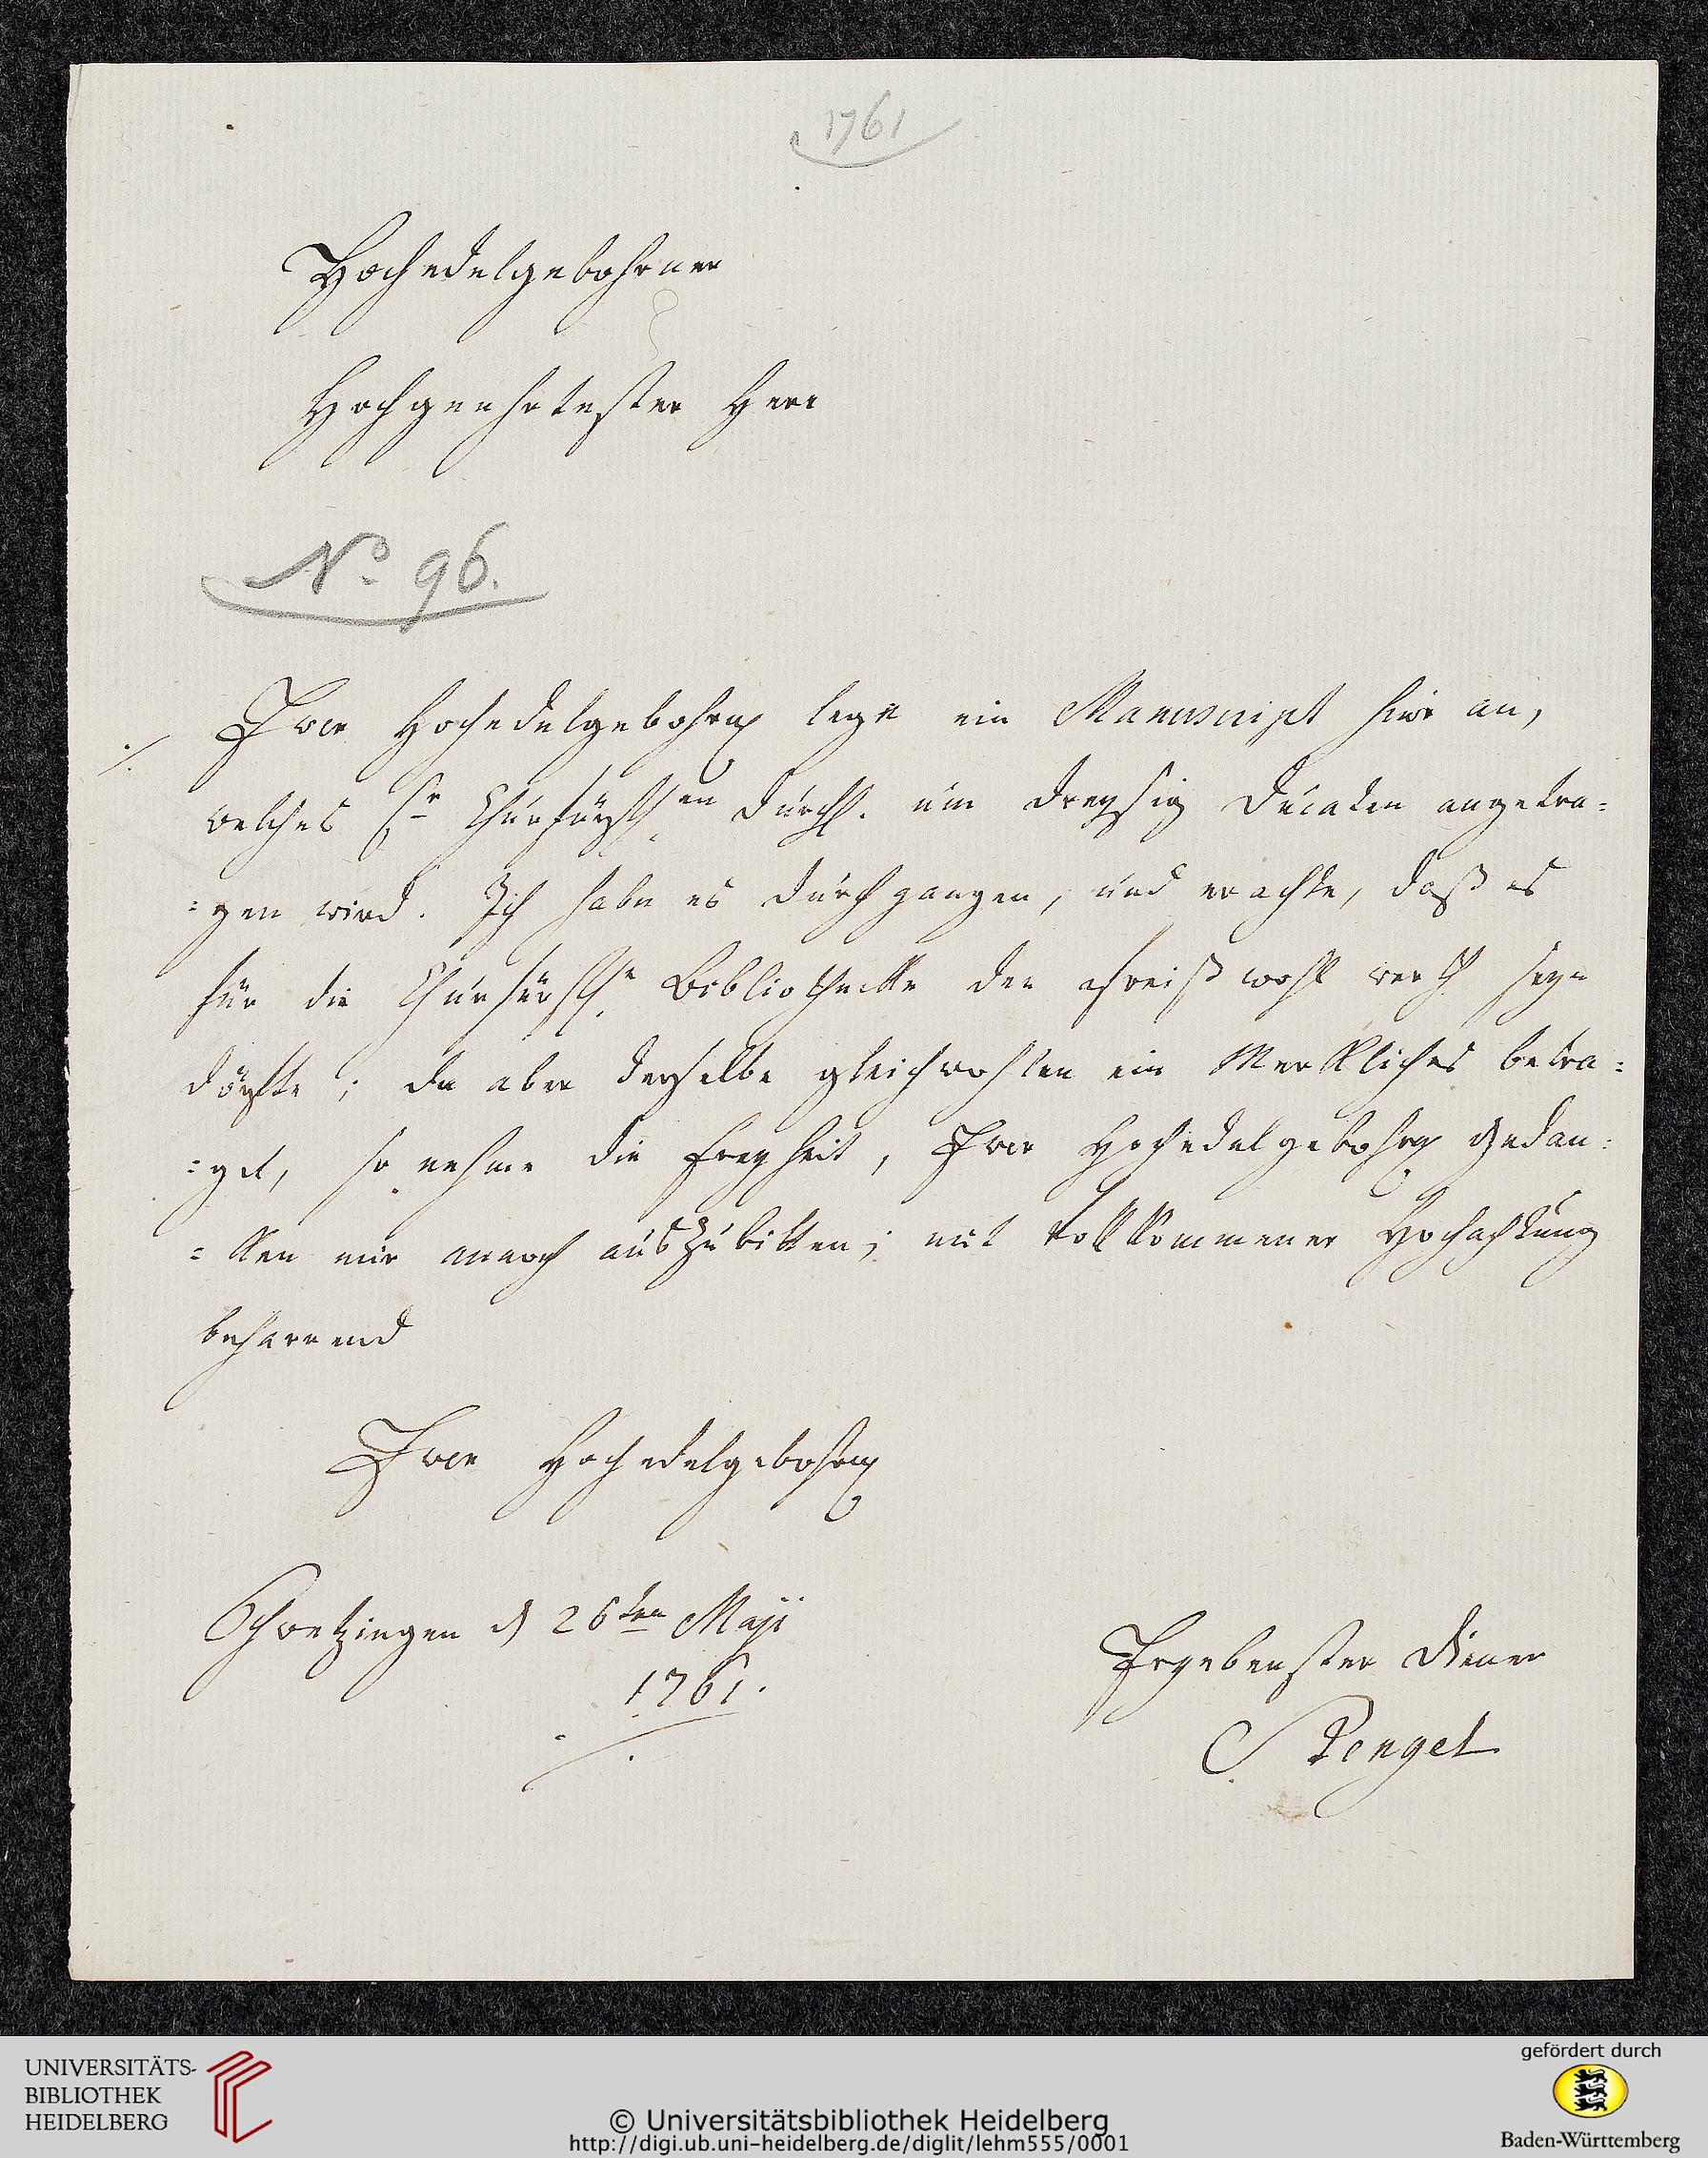 1761
Hochedelgebohrner
Hochgeehrtester Herr
No. 96.
./. Ewer Hochedelgebohrn lege ein Manuscript hier an,
welches Sr Churfürstlen Durchl. um dreysig Ducaten angetra=
=gen wird. Ich habe es durchgangen, und erachte, daß es
für die Churfürstle Bibliothecke den Preiß wohl werth seyn
dörfte; da aber derselbe gleichwohlen ein Merkliches betra=
=get, so nehme die Freyheit, Ewer Hochedelgebohrn Gedan=
=ken mir annoch auszubitten; mit vollkommener Hochachtung
beharrend
Ewer Hochedelgebohrn
Schwetzingen d 26ten Maji
1761.
Ergebenster Diener
Stengel
UNIVERSITÄTS-
BIBLIOTHEK
HEIDELBERG
© Universitätsbibliothek Heidelberg
http://digi.ub.uni-heidelberg.de/diglit/lehm555/0001
gefördert durch
Baden-Württemberg